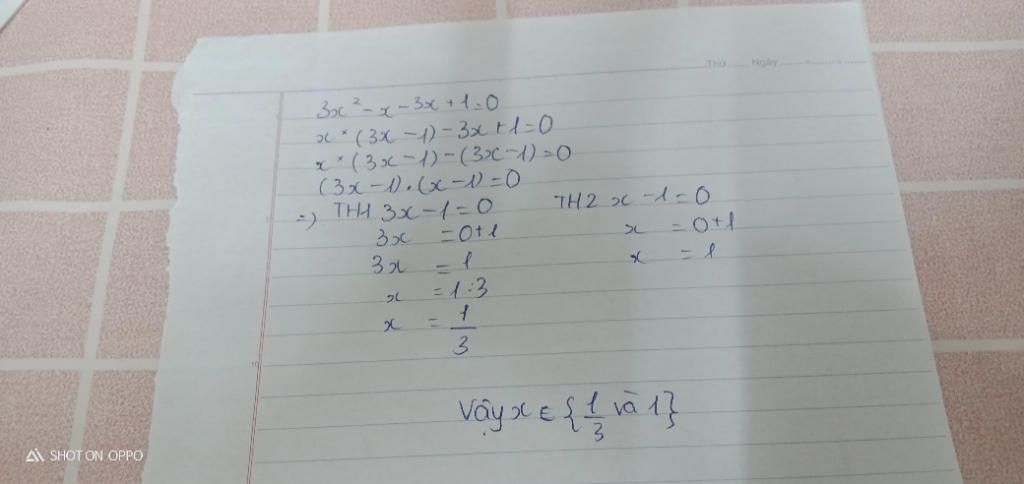 Thứ Ngày
3x² - x - 3x + 1 = 0
x * (3x - 1) - 3x + 1 = 0
x * (3x - 1) - (3x - 1) = 0
(3x - 1) . (x - 1) = 0
=) TH1 3x - 1 = 0 TH2 x - 1 = 0
3x = 0+1 x = 0+1
3x = 1 x = 1
x = 1:3
x = 1/3
Vậy x ∈ {1/3 và 1}
SHOT ON OPPO